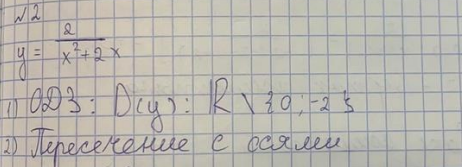 №2
y = 2 / x²+2x
1) ОДЗ: D(y): R \ {0; -2}
2) Пересечение с осями